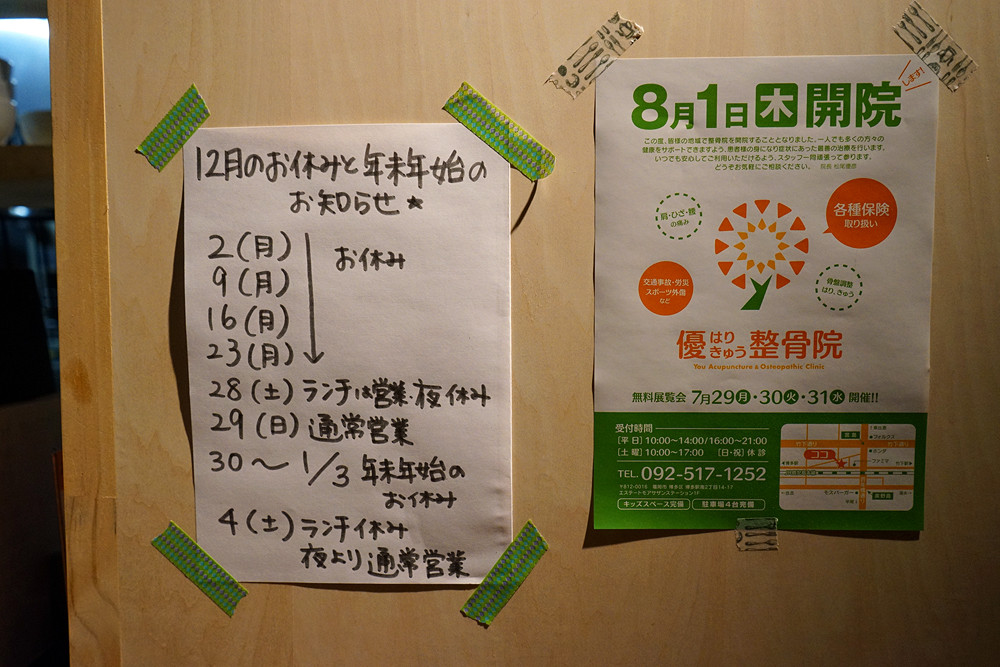 12月のお休みと年末年始の
お知らせ★
2(月)
9(月)
16(月)
23(月)
お休み
28(土)ランチは営業・夜休み
29(日)通常営業
30〜1/3年末年始の
お休み
4(土)ランチ休み
夜より通常営業
8月1日木開院
します!
この度、皆様の地域で整骨院を開院することとなりました。一人でも多くの方々の
健康をサポートできますよう、患者様の身になり症状にあった最善の治療を行います。
いつでも安心してご利用いただけるよう、スタッフ一同頑張って参ります。
どうぞお気軽にご相談ください。
肩・ひざ・腰
の痛み
各種保険
取り扱い
交通事故・労災
スポーツ外傷
など
骨盤調整
はり、きゅう
優はりきゅう整骨院
You Acupuncture & Osteopathic Clinic
無料展覧会 7月29月・30火・31水 開催!!
受付時間
[平日]10:00〜14:00/16:00〜21:00
[土曜]10:00〜17:00 [日・祝]休診
TEL. 092-517-1252
〒812-0016 福岡市 博多区 博多駅南2丁目14-17
エステートモアサザンステーション1F
キッズスペース完備
駐車場4台完備
ココ
モスバーガー